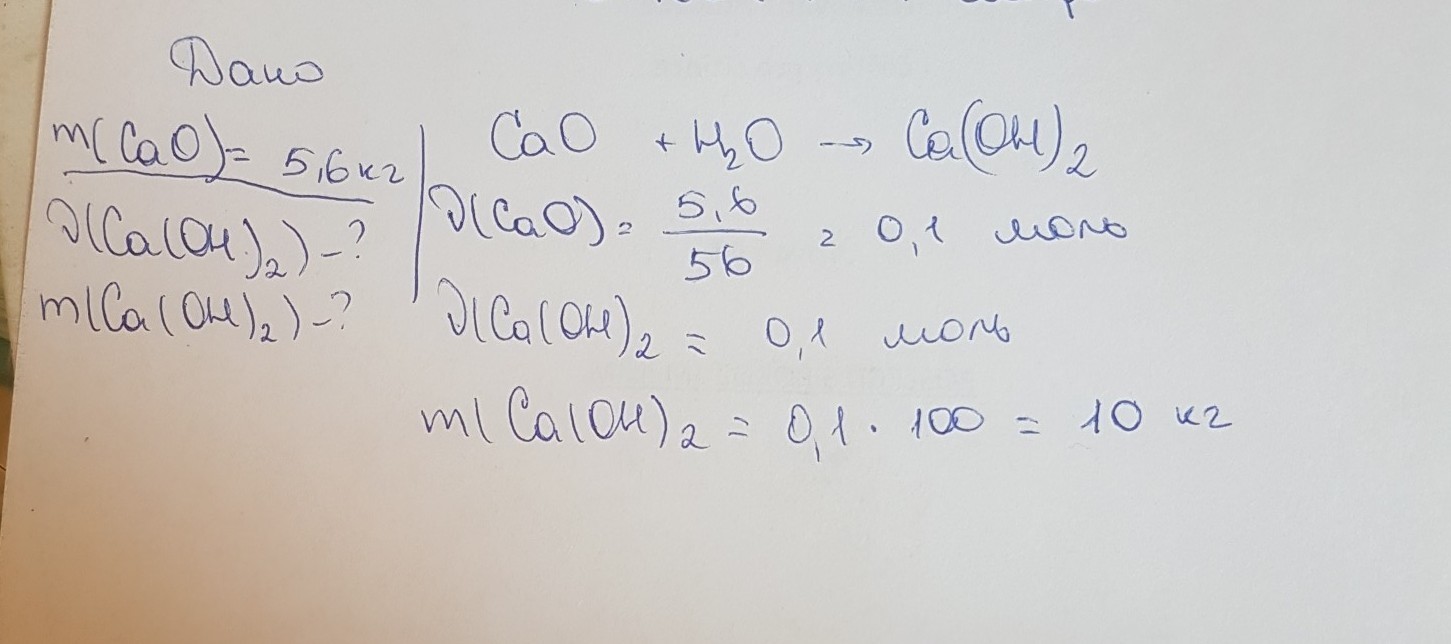 Дано
m(CaO) = 5,6 кг
ν(Ca(OH)2) - ?
m(Ca(OH)2) - ?
CaO + H2O → Ca(OH)2
ν(CaO) = 5,6 / 56 = 0,1 моль
ν(Ca(OH)2 = 0,1 моль
m(Ca(OH)2 = 0,1 · 100 = 10 кг